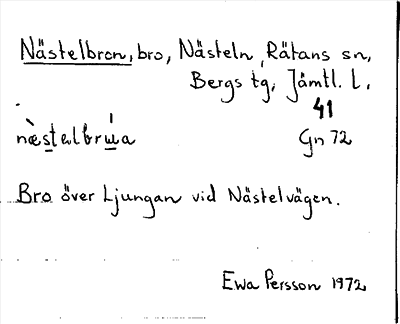 Nästelbron, bro, Nästeln, Rätans sn,
Bergs tg, Jämtl. l.
41
næ̀stəlbrúa Gn 72
Bro över Ljungan vid Nästelvägen.
Ewa Persson 1972